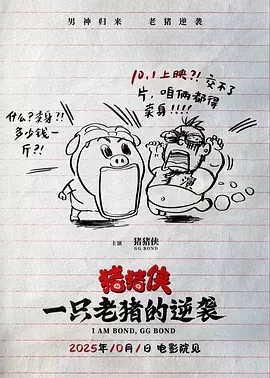 男神归来 老猪逆袭
10.1上映?! 交不了
片,咱俩都得
卖身!!!!
什么?卖身?!
多少钱一
斤?!
导演
主演 猪猪侠
GG BOND
猪猪侠
一只老猪的逆袭
I AM BOND, GG BOND
2025年10月1日 电影院见